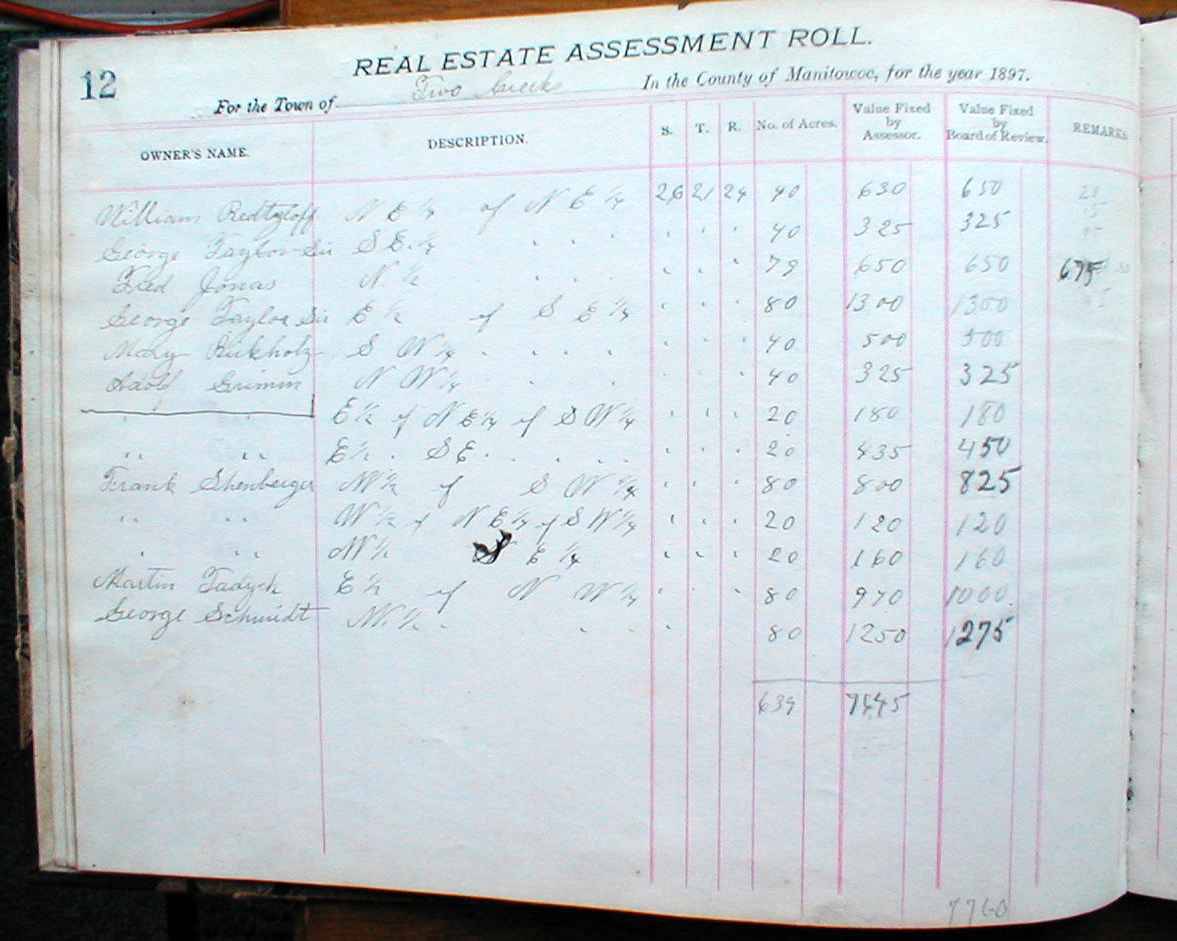 12
REAL ESTATE ASSESSMENT ROLL.
For the Town of Two Creeks In the County of Manitowoc, for the year 1897.
OWNER'S NAME. DESCRIPTION. S. T. R. No. of Acres. Value Fixed by Assessor. Value Fixed by Board of Review. REMARKS.
William N E ¼ of N E ¼ 26 21 24 40 630 650
George Taylor Sir S E. ¼ . . . . . . 40 325 325
Fred Jonas N. ½ . . . . . . 79 650 650 675
George Taylor Sir E ½ of S E ¼ . . . 80 1300 1300
Mary S W ¼ . . . . . . . 40 500 500
Adolf Grimm N W ¼ . . . . . 40 325 325
" " E ½ of N E ¼ of S W ¼ . . . 20 180 180
" " E ½ . S E . . . . . . . . 20 435 450
Frank Shenberger W ½ of S W ¼ . . . 80 800 825
" " W ½ of N E ¼ of S W ¼ . . . 20 120 120
" " W ½ S E ¼ . . . 20 160 160
Martin Tadych E ½ of N W ¼ . . . 80 970 1000
George Schmidt W. ½ . . . . . 80 1250 1275
639 7545
7760